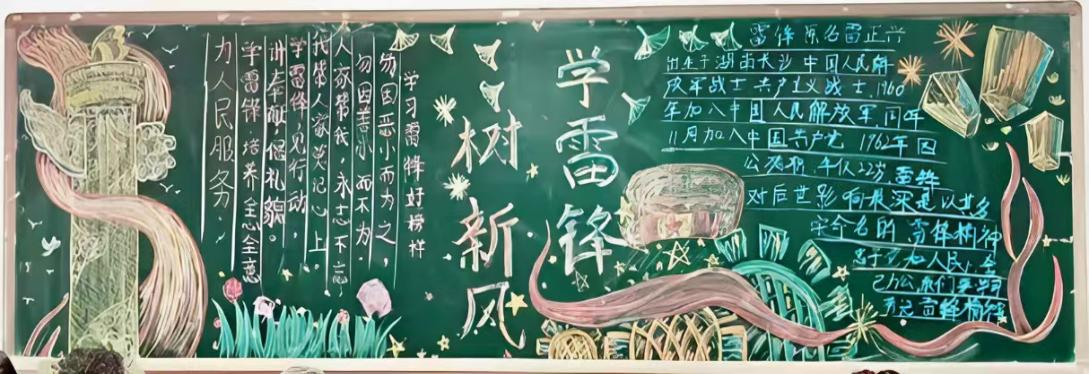 学习雷锋好榜样
勿因恶小而为之，
勿因善小而不为。
人家帮我，永志不忘
我帮人家，莫记心上。
学雷锋，见行动，
讲奉献，倡礼貌。
学雷锋，培养全心全意
为人民服务。
学雷锋
树新风
雷锋原名雷正兴
出生于湖南长沙中国人民解
放军战士共产主义战士，1960
年加入中国人民解放军同年
11月加入中国共产党 1962年因
公殉职，年仅22岁雷锋
对后世影响最深是以其名
字命名的雷锋精神
忠于党和人民，舍
己为公
雷锋精神